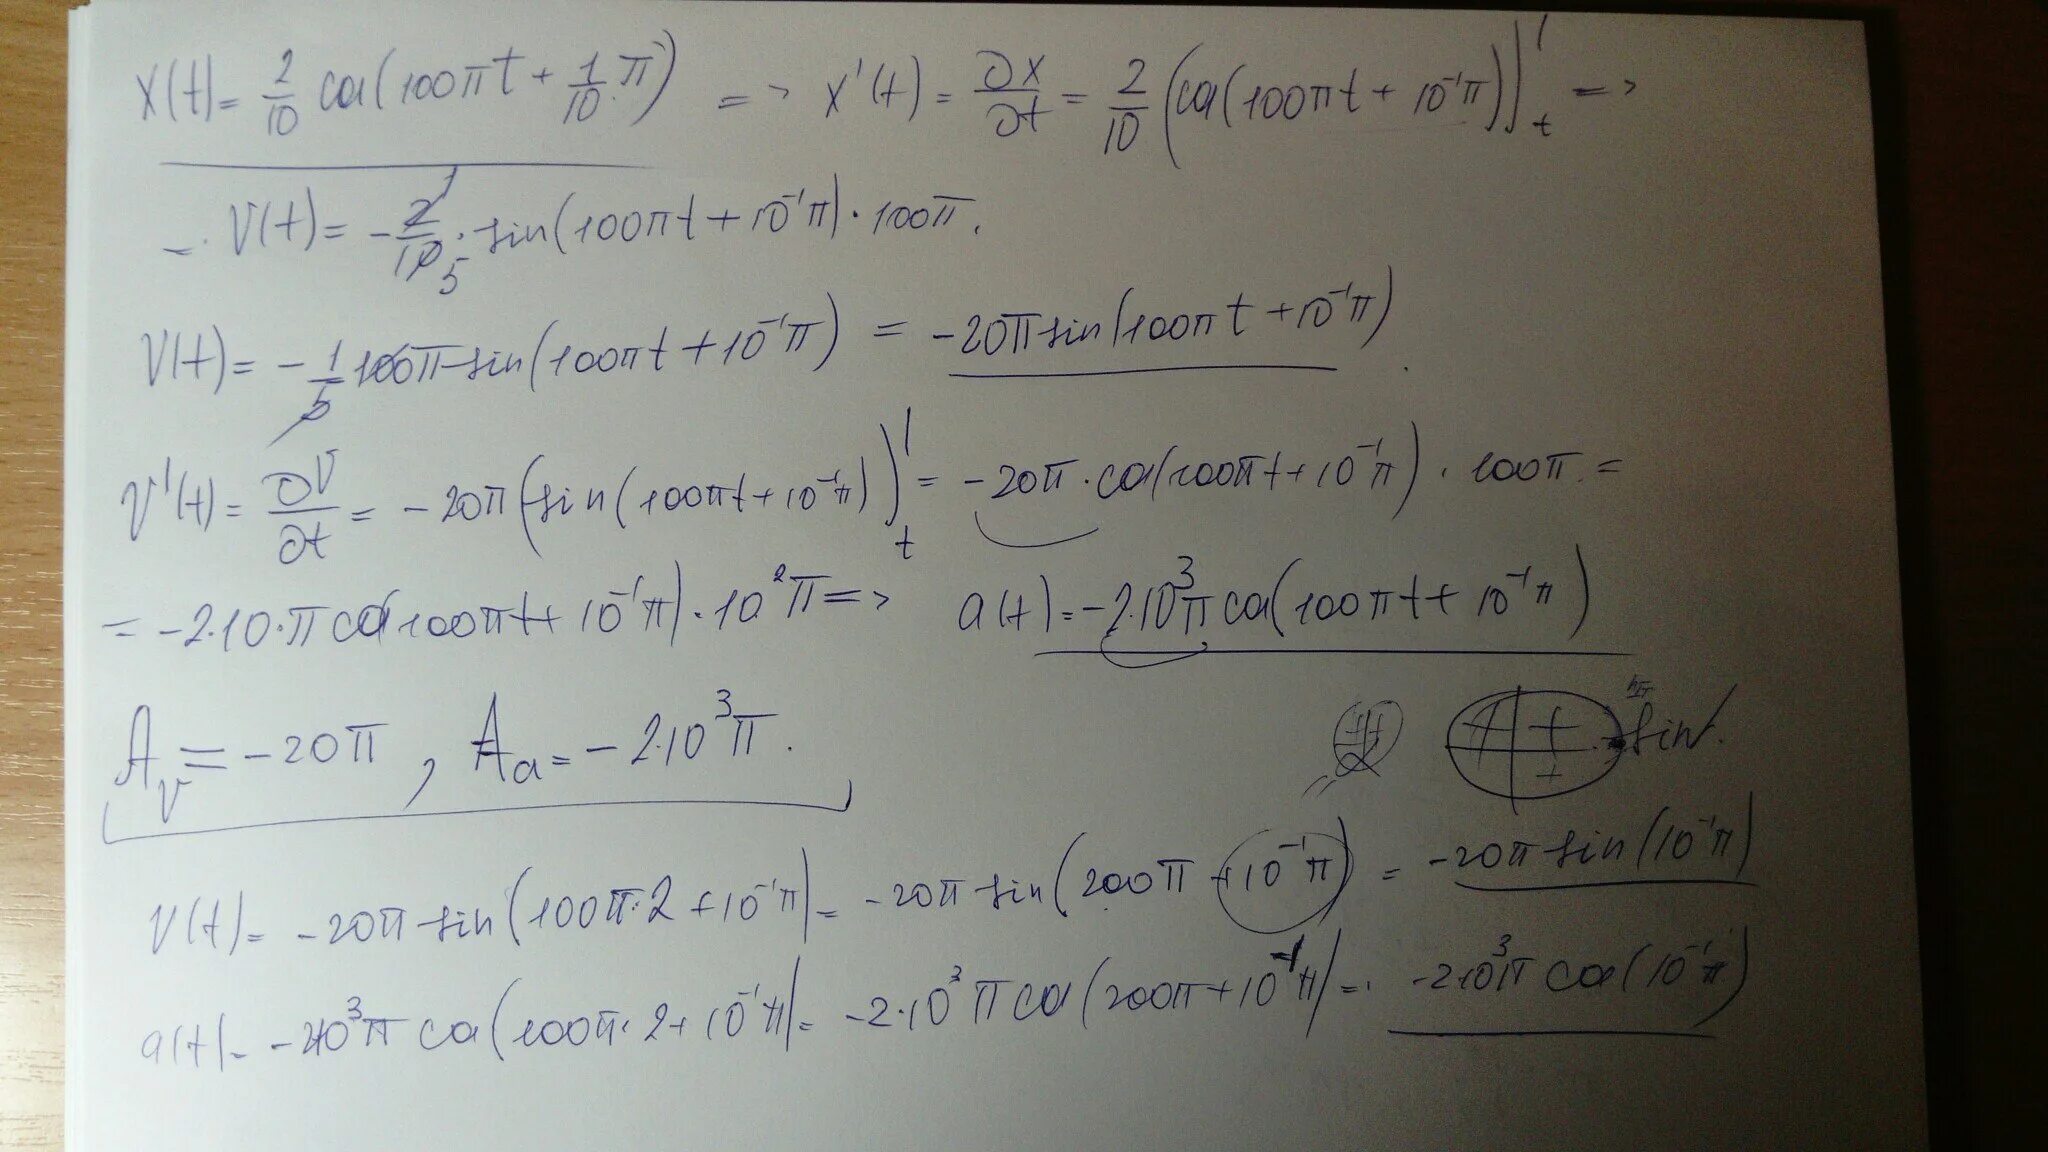 x(t) = 2/10 cos(100πt + 1/10 π) => x'(t) = ∂x/∂t = 2/10 (cos(100πt + 10⁻¹π))'ₜ =>
- V(t) = -2/10 5 · sin(100πt + 10⁻¹π) · 100π.
V(t) = -1/5 100π sin(100πt + 10⁻¹π) = -20π sin(100πt + 10⁻¹π)
V'(t) = ∂V/∂t = -20π (sin(100πt + 10⁻¹π))'ₜ = -20π · cos(100πt + 10⁻¹π) · 100π =
= -2·10·π cos(100πt + 10⁻¹π) · 10²π => a(t) = -2·10³π cos(100πt + 10⁻¹π)
Aᵥ = -20π, Aₐ = -2·10³π.
sin
V(t) = -20π sin(100π·2 + 10⁻¹π) = -20π sin(200π + 10⁻¹π) = -20π sin(10⁻¹π)
a(t) = -2·10³π cos(100π·2 + 10⁻¹π) = -2·10³π cos(200π + 10⁻¹π) = -2·10³π cos(10⁻¹π)